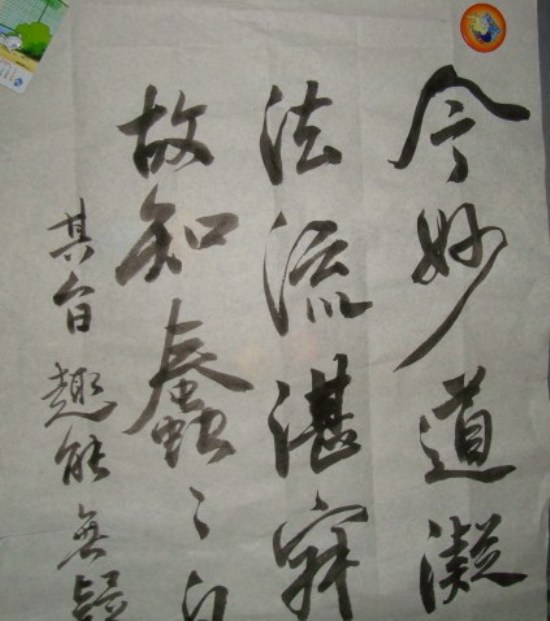 今妙道凝
法流湛寂
故知蠢〻
其旨趣能無疑